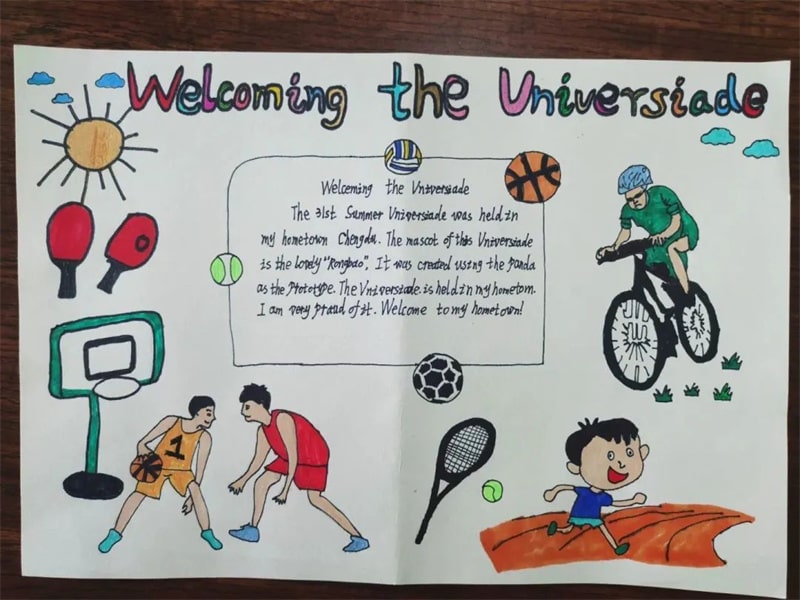 Welcoming the Universiade
Welceming the Vniversiade
The 31st Summer Vniversiade was held in
my hometown Chengdu. The mascot of this Universiade
is the lovely "Rongbao". It was created using the panda
as the prototype. The Vniversiade is held in my hometown.
I am very proud of it. Welcome to my hometown!
1